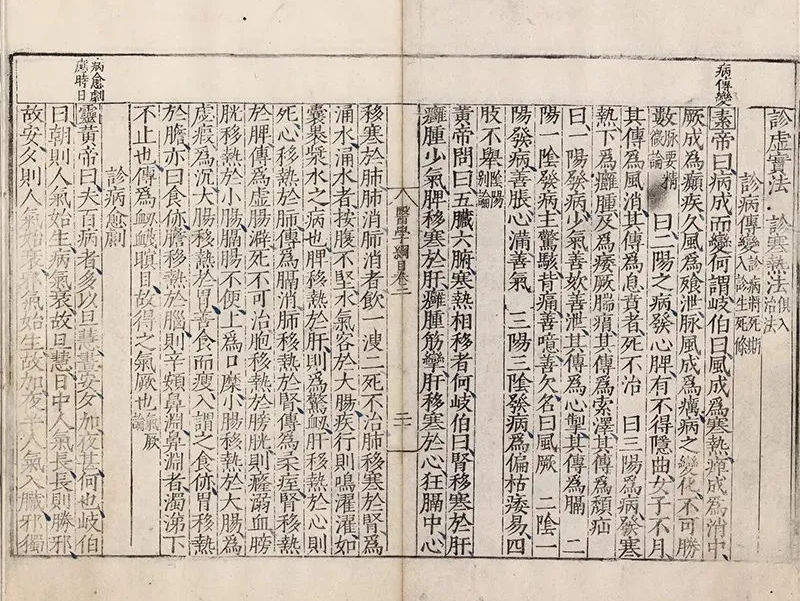 診虛實法 診寒熱法俱入治法
診病傳變診病將死期入診生死條
病傳變
素帝曰病成而變何謂岐伯曰風成爲寒熱癉成爲消中
厥成爲癲疾久風爲飱泄脉風成爲癘病之變化不可勝
數脉要精微論 曰二陽之病發心脾有不得隱曲女子不月
其傳爲風消其傳爲息賁者死不治 曰三陽爲病發寒
熱下爲癰腫及爲痿厥腨㾓其傳爲索澤其傳爲㿗疝
曰一陽發病少氣善欬善泄其傳爲心掣其傳爲膈 二
陽一陰發病主驚駭背痛善噫善欠名曰風厥 二陰一
陽發病善脹心滿善氣 三陽三陰發病爲偏枯痿易四
肢不舉陰陽別論
黃帝問曰五臟六腑寒熱相移者何岐伯曰腎移寒於肝
癰腫少氣脾移寒於肝癰腫筋攣肝移寒於心狂膈中心
醫學綱目卷二 二十
移寒於肺肺消肺消者飲一溲二死不治肺移寒於腎爲
涌水涌水者按腹不堅水氣客於大腸疾行則鳴濯濯如
囊裹漿水之病也脾移熱於肝則爲驚衂肝移熱於心則
死心移熱於肺傳爲膈消肺移熱於腎傳爲柔痓腎移熱
於脾傳爲虛腸澼死不可治胞移熱於膀胱則癃溺血膀
胱移熱於小腸膈腸不便上爲口糜小腸移熱於大腸爲
虙瘕爲沉大腸移熱於胃善食而瘦入謂之食㑊胃移熱
於膽亦曰食㑊膽移熱於腦則辛頞鼻淵鼻淵者濁涕下
不止也傳爲衂衊瞑目故得之氣厥也氣厥論
診病愈劇
病愈劇處時日
靈黃帝曰夫百病者多以旦慧晝安夕加夜甚何也岐伯
曰朝則人氣始生病氣衰故旦慧日中人氣長長則勝邪
故安夕則人氣始衰邪氣始生故加夜半人氣入臟邪獨